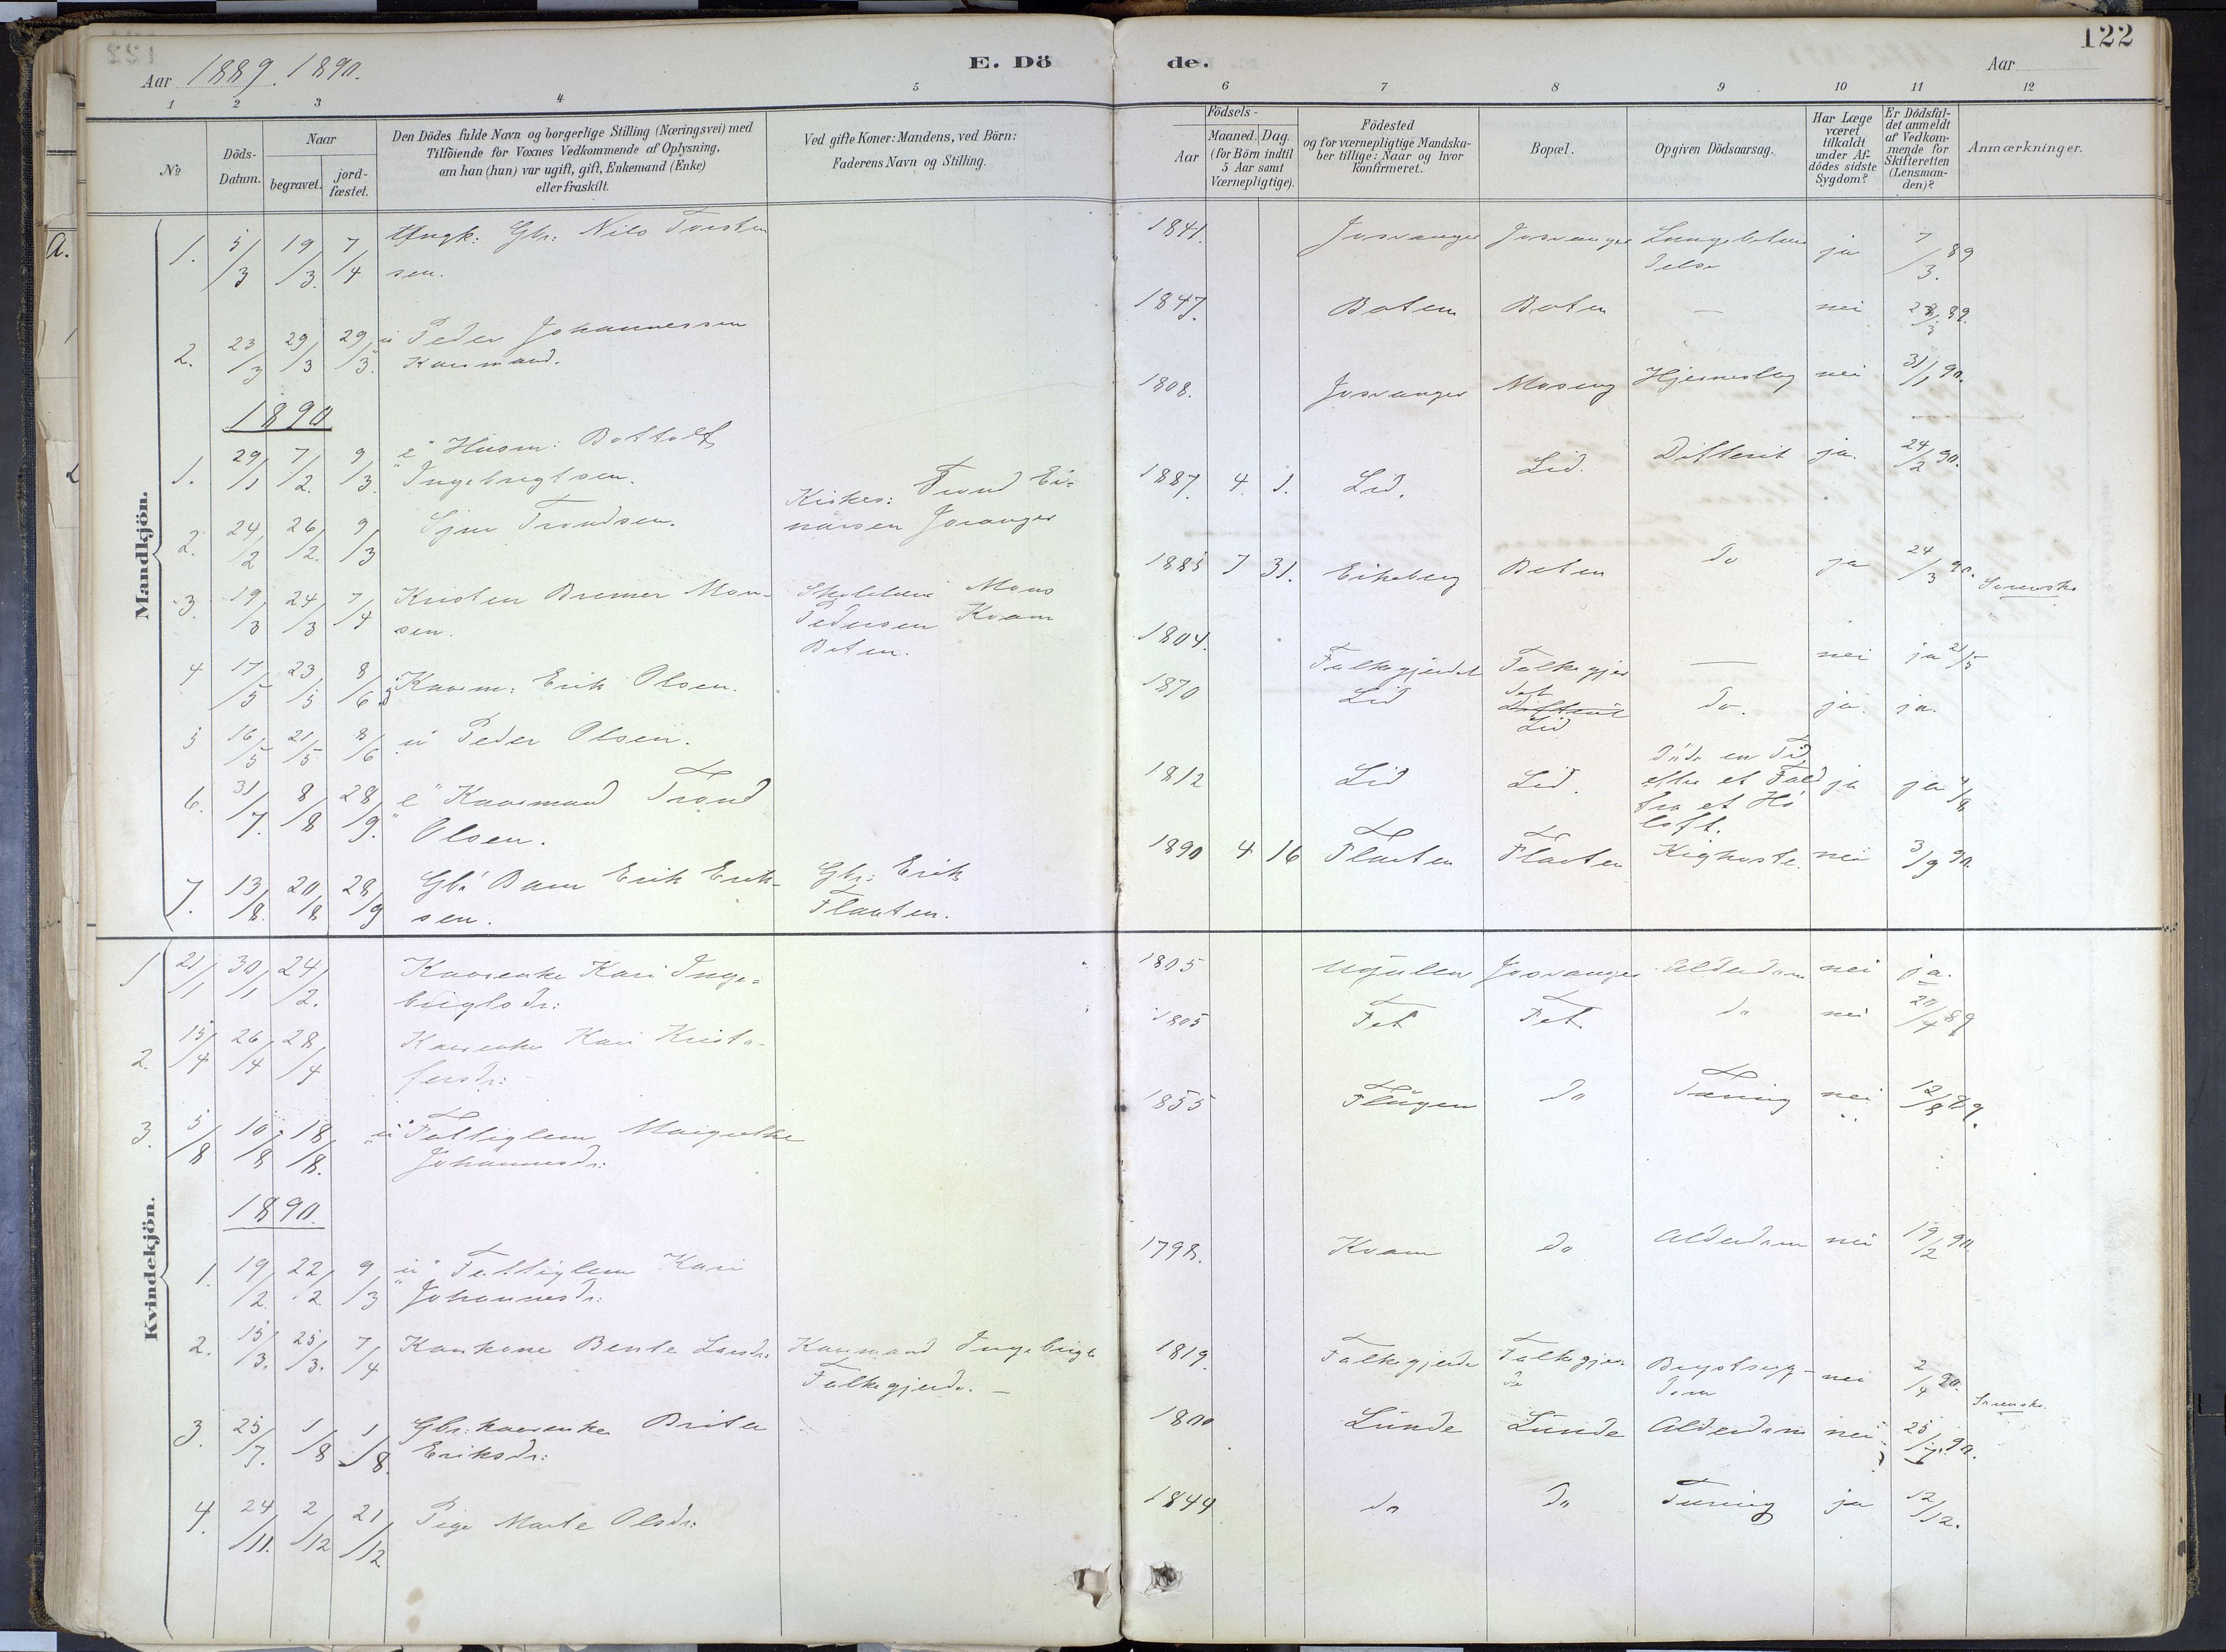 122
Aar 1889. 1890.
E. Dö
de.
Aar
1 2 3 4 5
6 7 8 9 10 11 12
No
Döds-
Datum.
Naar
begravet.
jord-
fæstet.
Den Dödes fulde Navn og borgerlige Stilling (Næringsvei) med
Tilföiende for Voxnes Vedkommende af Oplysning,
om han (hun) var ugift, gift, Enkemand (Enke)
eller fraskilt.
Ved gifte Koner: Mandens, ved Börn:
Faderens Navn og Stilling.
Födsels-
Aar
Maaned. Dag.
(for Börn indtil
5 Aar samt
Værnepligtige).
Födested
og for værnepligtige Mandska-
ber tillige: Naar og hvor
konfirmeret.
Bopæl.
Opgiven Dödsaarsag.
Har Læge
været
tilkaldt
under Af-
dödes sidste
Sygdom?
Er Dödsfal-
det anmeldt
af Vedkom-
mende for
Skifteretten
(Lensman-
den)?
Anmærkninger.
Mandkjön.
1. 5/3 19/3. 7/4 Ungk: Gbr: Nils Torsten
sen.
1841. Josvanger Josvanger ja 7/3. 89
2. 23/3 29/3 29/3. u Peder Johannessen
Kaarmand.
1847. Boten Boten — nei 28/3 89.
1890
1. 29/1 7/2. 9/3. e Husm: Bottolf
Ingebrigtsen.
1808. Josvanger Moseng Hjerneslag nei 31/1 90.
2. 24/2 26/2. 9/3 Sjur Trondsen.
Trond Ei-
narsen Joranger
1887. 4. 1. Lid. Lid. Difterit ja. 24/2 90.
3. 19/3 24/3 7/4 Kristen Bremer Mon-
sen.
Mons
Pedersen Kvam
Boten.
1885 7 31. Eikeberg Boten do ja 24/3 90.
4 17/5 23/5 8/6 Kaarm: Erik Olsen.
1804. Falkegjerdet Falkegjer
det
— nei ja 21/5
5 16/5 21/5 8/6 u Peder Olsen.
1870 Lid Lid do. ja. ja.
6. 31/7. 8/8 28/9. e Kaarmand Trond
Olsen.
1812 Lid Lid.
Döde en Tid
efter et Fald
fra et Hö
loft.
ja ja 4/8
7. 13/8. 20/8 28/9 Gbr Barn Erik Erik-
sen.
Gbr: Erik
Flaaten.
1890 4 16 Flaaten Flaaten Kighoste. nei 3/9 90.
Kvindekjön.
1 21/1 30/1 24/2. Kaarenke Kari Inge-
brigtsdr:
1805 Josvanger Alderdom nei ja.
2. 15/4 26/4 28/4 Kaarenke Kari Kristo-
fersdr:
1805 Fet Fet do nei 20/4 89
3. 5/8 10/8 18/8. u Fattiglem Margrethe
Johannesdr:
1855 Flugen do Tæring nei 12/8 89.
1890.
1. 19/2. 22/2. 9/3 u Fattiglem Kari
Johannesdr:
1798. Kvam do Alderdom nei 19/2 90.
2. 15/3. 25/3. 7/4 Kaarkone Bente Larsdr. Kaarmand Ingebrigt
Falkegjerde. —
1819. Falkegjerde Falkegjer-
de
Brystsyg-
dom
nei 2/4 90.
3. 25/7. 1/8 1/8. Gbr: kaarenke Brita
Eriksdr:
1800 Lunde Lunde Alderdom nei 25/7. 90.
4. 24/11. 2/12 21/12 Pige Marte Olsdr:
1844 do do Tæring ja 12/12.